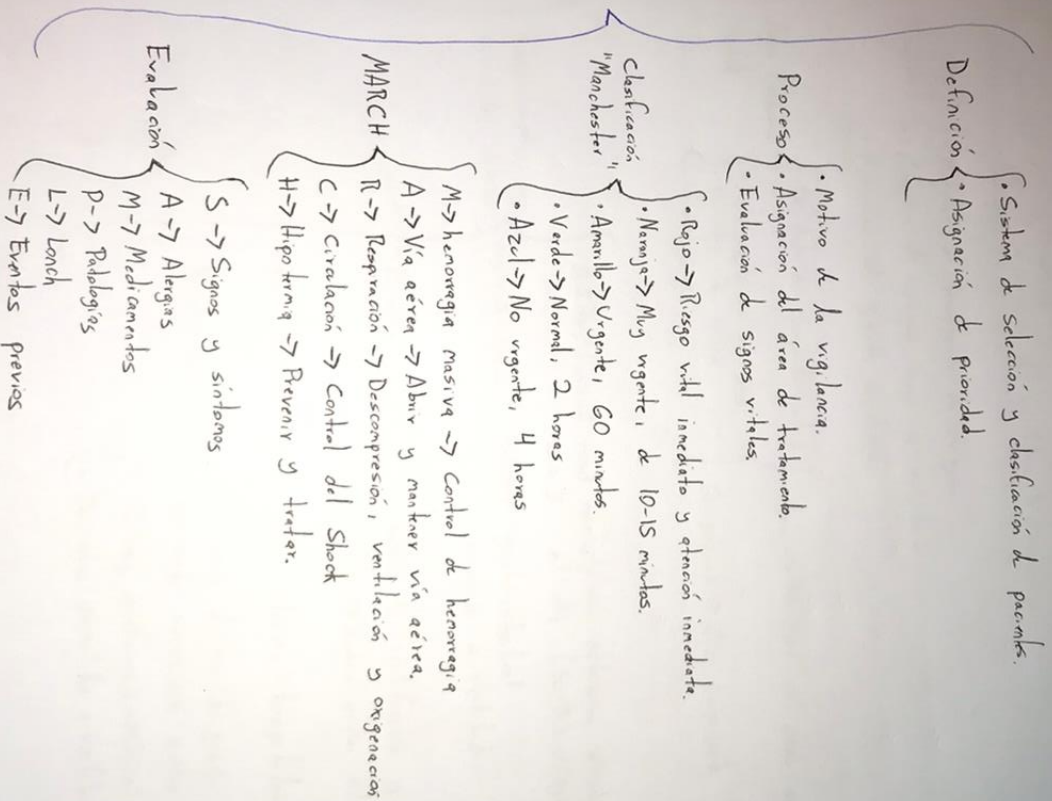 Definición
• Sistema de selección y clasificación de pacientes.
• Asignación de prioridad.
Proceso
• Motivo de la vigilancia.
• Asignación del área de tratamiento.
• Evaluación de signos vitales.
Clasificación
"Manchester"
• Rojo -> Riesgo vital inmediato y atención inmediata.
• Naranja -> Muy urgente, de 10-15 minutos.
• Amarillo -> Urgente, 60 minutos.
• Verde -> Normal, 2 horas
• Azul -> No urgente, 4 horas
MARCH
M -> hemorragia masiva -> Control de hemorragia
A -> Vía aérea -> Abrir y mantener vía aérea.
R -> Respiración -> Descompresión, ventilación y oxigenación
C -> Circulación -> Control del Shock
H -> Hipotermia -> Prevenir y tratar.
Evaluación
S -> Signos y síntomas
A -> Alergias
M -> Medicamentos
P -> Patologías
L -> Lonch
E -> Eventos previos